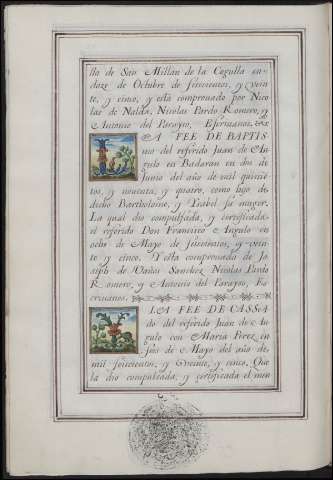 lla de San Millan de la Cogulla en
doze de Octubre de seiscientos, y vein
te, y cinco, y està comprouado por Nico
las de Nalda, Nicolas Pardo Romero, y
Antonio del Parayso, Escriuanos.
LA FEE DE BAPTIS
mo del referido Juan de An
gulo en Badaran en dos de
Junio del año de mil quinien
tos, y nouenta, y quatro, como hijo de
dicho Bartholome, y Ysabel su muger.
La qual dio compulsada, y certificada
el referido Don Francisco Angulo en
ocho de Mayo de seiscientos, y vein
te y cinco. Y esta comprouada de Jo
seph de Sanchez Nicolas Pardo
Romero, y Antonio del Parayso, Es
criuanos.
LA FEE DE CASSA
do del referido Juan de An
gulo con Maria Perez en
seis de Mayo del año de
mil seiscientos, y veinte, y cinco, Que
la dio compulsada, y certificada el men